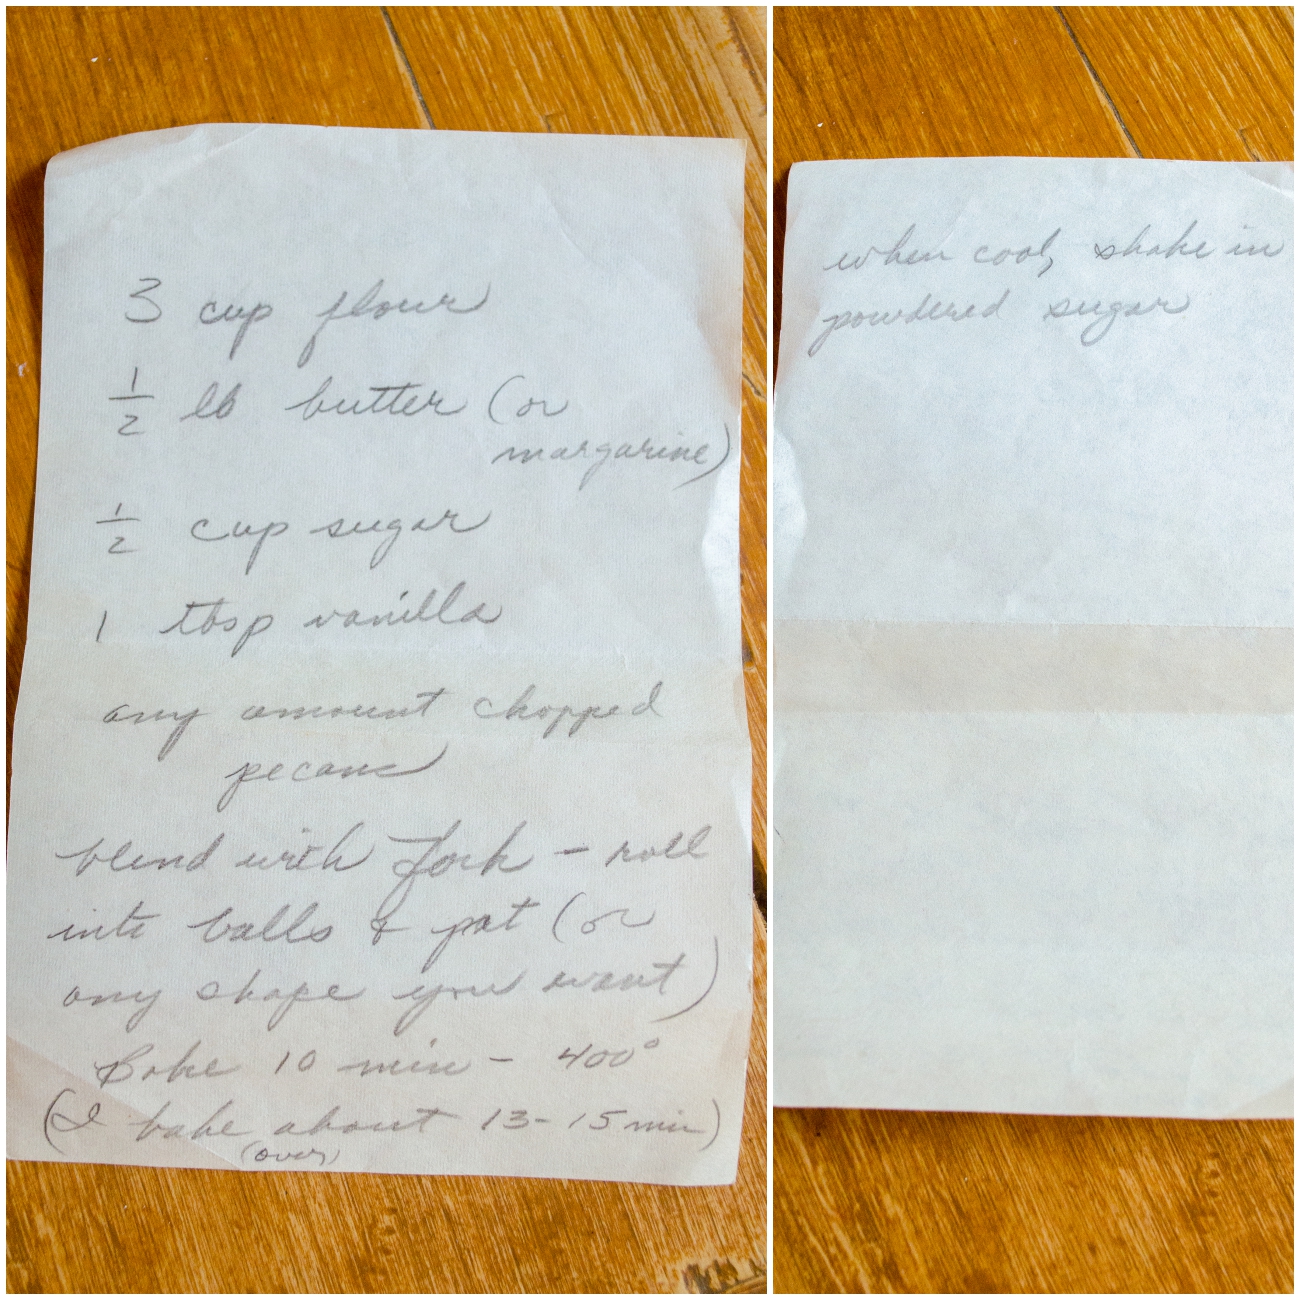 3 cup flour
1/2 lb butter (or
margarine)
1/2 cup sugar
1 tbsp vanilla
any amount chopped
pecans
blend with fork - roll
into balls & pat (or
any shape you want)
Bake 10 min - 400°
(I bake about 13-15 min)
(over)
when cool, shake in
powdered sugar